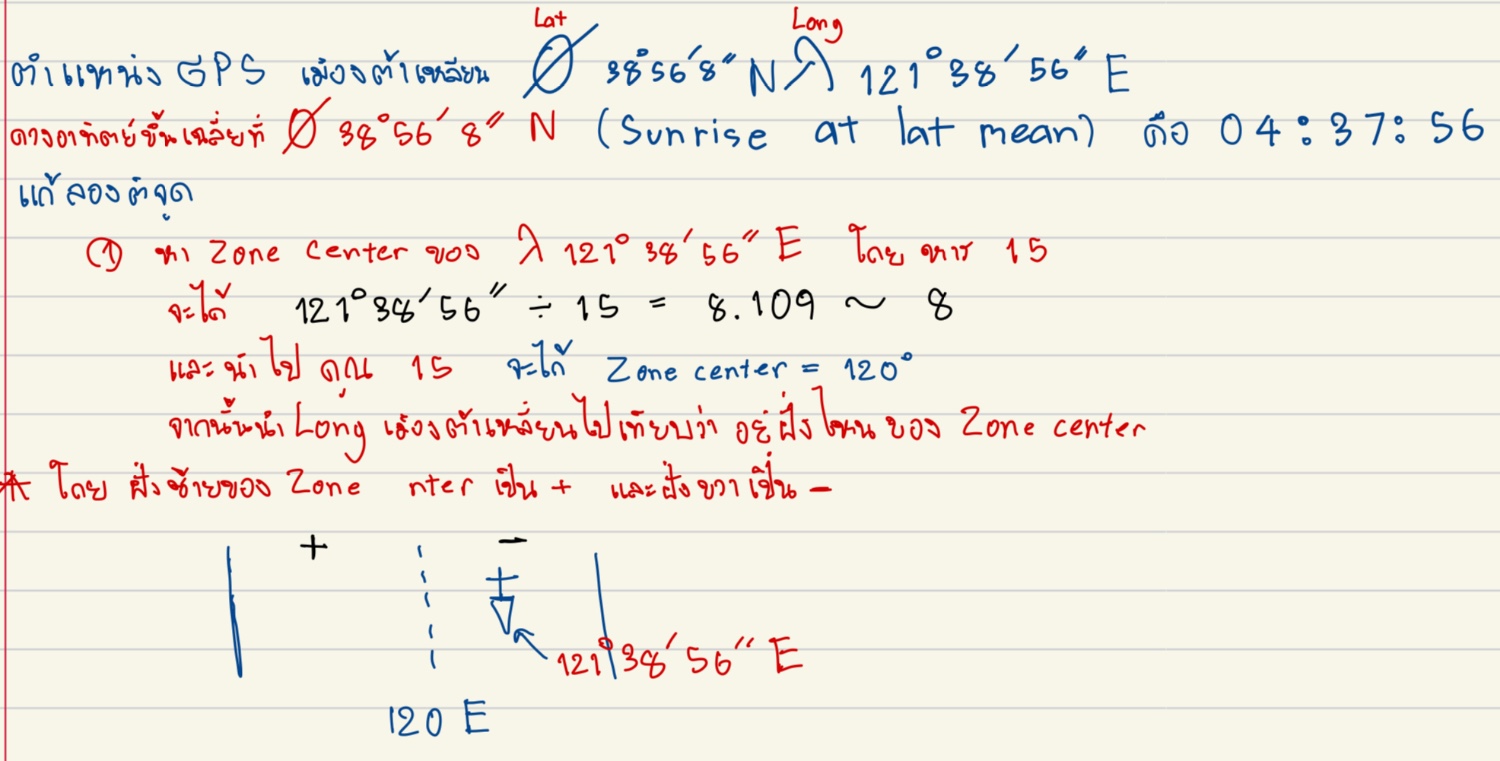 Lat Long
ตำแหน่ง GPS เมืองต้าเหลียน Ø 38°56′8″ N λ 121°38′56″ E
ดวงอาทิตย์ขึ้นเฉลี่ยที่ Ø 38°56′8″ N (Sunrise at lat mean) คือ 04:37:56
แก้ลองติจูด
① หา Zone center ของ λ 121°38′56″ E โดย หาร 15
จะได้ 121°38′56″ ÷ 15 = 8.109 ~ 8
และนำไป คูณ 15 จะได้ Zone center = 120°
จากนั้นนำ Long เมืองต้าเหลี่ยนไปเทียบว่า อยู่ฝั่งไหน ของ Zone center
* โดย ฝั่งซ้ายของ Zone nter เป็น + และฝั่งขวาเป็น -
+ -
121°38′56″ E
120 E